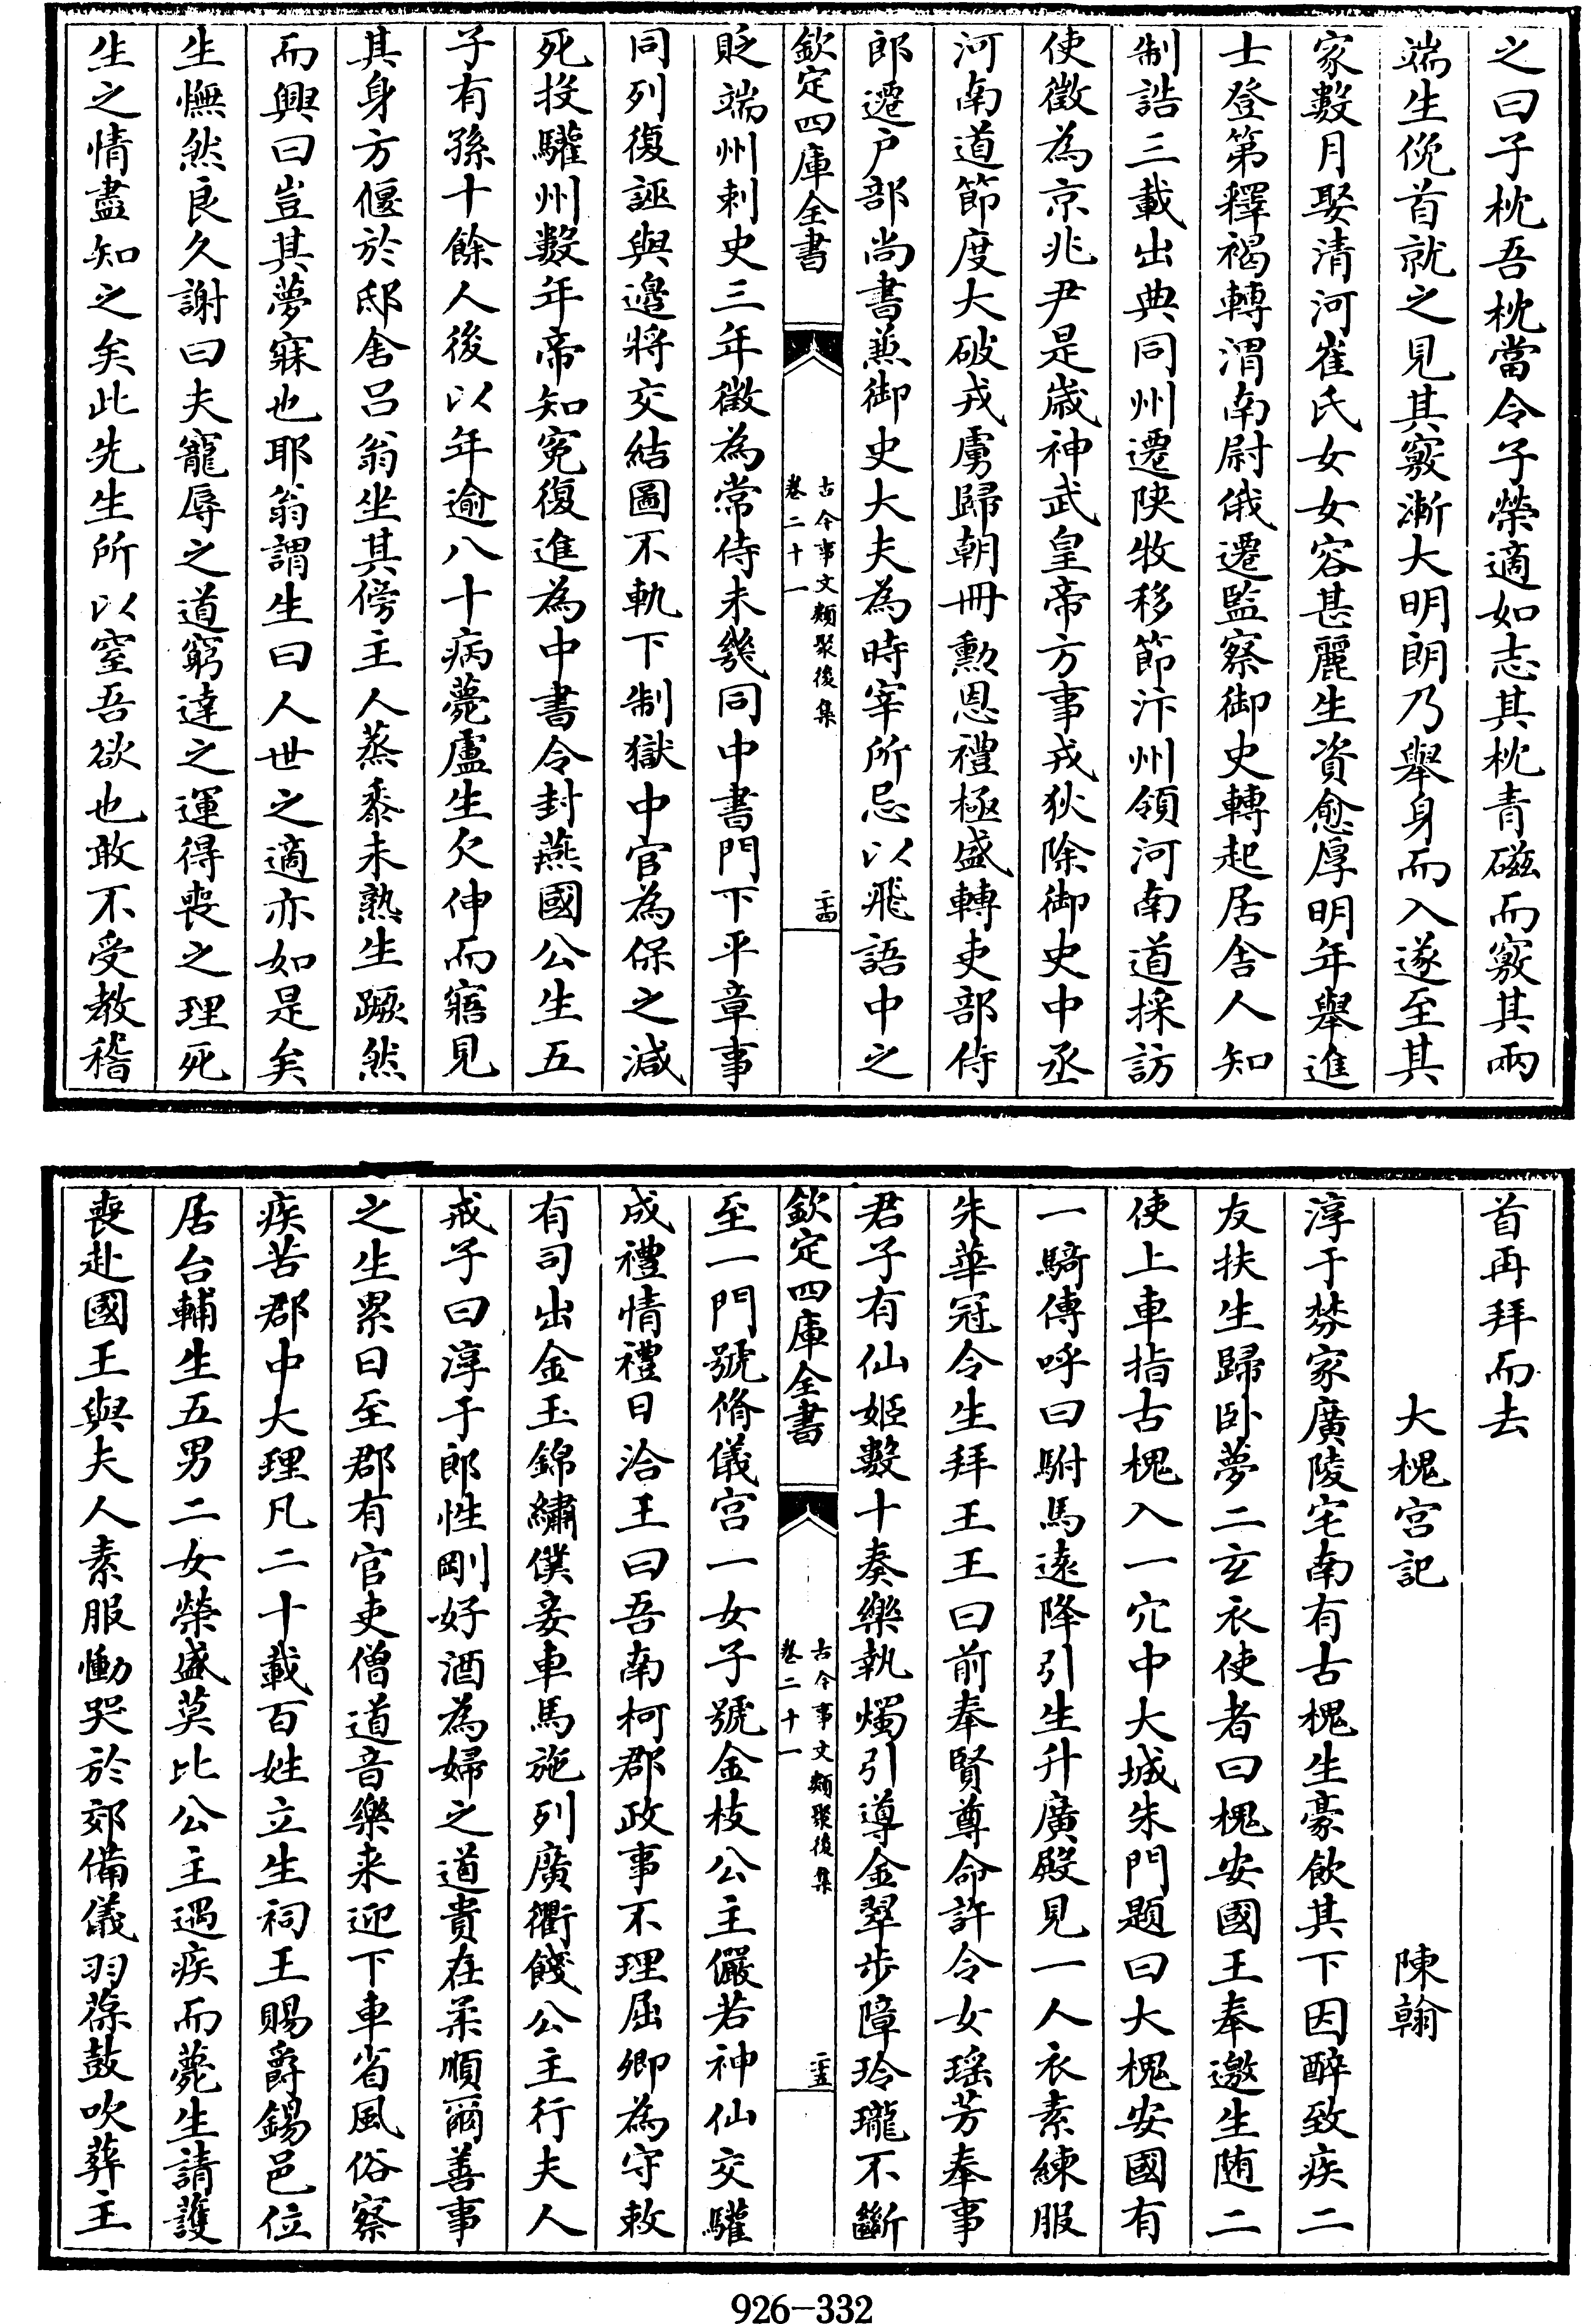 之曰子枕吾枕當令子榮適如志其枕青磁而竅其兩
端生俛首就之見其竅漸大明朗乃舉身而入遂至其
家數月娶清河崔氏女女容甚麗生資愈厚明年舉進
士登第釋褐轉渭南尉俄遷監察御史轉起居舍人知
制誥三載出典同州遷陜牧移節汴州領河南道採訪
使徵為京兆尹是歲神武皇帝方事戎狄除御史中丞
河南道節度大破戎虜歸朝冊勲恩禮極盛轉吏部侍
郎遷户部尚書兼御史大夫為時宰所忌以飛語中之
欽定四庫全書
古今事文類聚後集
卷二十一
二十四
貶端州刺史三年徵為常侍未幾同中書門下平章事
同列復誣與邉將交結圖不軌下制獄中官為保之減
死投驩州數年帝知寃復進為中書令封燕國公生五
子有孫十餘人後以年逾八十病薨盧生欠伸而寤見
其身方偃於邸舍吕翁坐其傍主人蒸黍未熟生蹶然
而興曰豈其夢寐也耶翁謂生曰人世之適亦如是矣
生憮然良久謝曰夫寵辱之道窮達之運得喪之理死
生之情盡知之矣此先生所以窒吾欲也敢不受教稽
首再拜而去
大槐宮記 陳翰
淳于棼家廣陵宅南有古槐生豪飲其下因醉致疾二
友扶生歸卧夢二玄衣使者曰槐安國王奉邀生随二
使上車指古槐入一穴中大城朱門題曰大槐安國有
一騎傳呼曰駙馬遠降引生升廣殿見一人衣素練服
朱華冠令生拜王王曰前奉賢尊命許令女瑶芳奉事
君子有仙姬數十奏樂執燭引導金翠步障玲瓏不斷
欽定四庫全書
古今事文類聚後集
卷二十一
二十五
至一門號脩儀宫一女子號金枝公主儼若神仙交驩
成禮情禮日洽王曰吾南柯郡政事不理屈卿為守敕
有司出金玉錦繡僕妾車馬施列廣衢餞公主行夫人
戒子曰淳于郎性剛好酒為婦之道貴在柔順爾善事
之生累日至郡有官吏僧道音樂来迎下車省風俗察
疾苦郡中大理凡二十載百姓立生祠王賜爵錫邑位
居台輔生五男二女榮盛莫比公主遇疾而薨生請護
喪赴國王與夫人素服慟哭於郊備儀羽葆鼓吹葬主
926-332